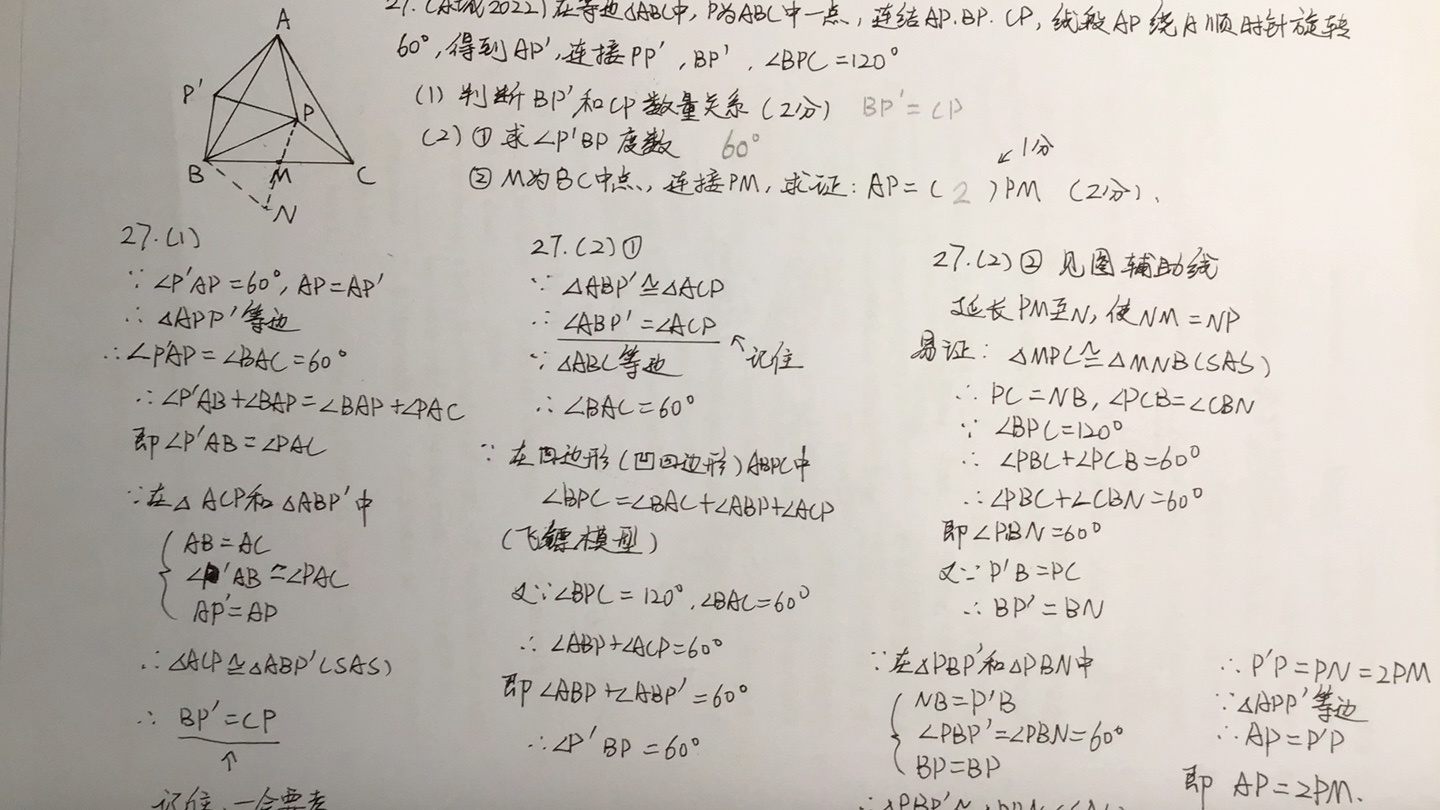 27.(东城2022)在等边△ABC中,P为ABC中一点,连结AP.BP.CP,线段AP绕A顺时针旋转
60°,得到AP',连接PP',BP',∠BPC=120°
(1)判断BP'和CP数量关系(2分) BP'=CP
(2)①求∠P'BP度数 60°
1分
②M为BC中点,连接PM,求证:AP=(2)PM (2分).
A
P'
P
B
M
C
N
27.(1)
∵∠P'AP=60°,AP=AP'
∴△APP'等边
∴∠P'AP=∠BAC=60°
∴∠P'AB+∠BAP=∠BAP+∠PAC
即∠P'AB=∠PAC
∵在△ACP和△ABP'中
AB=AC
∠P'AB=∠PAC
AP'=AP
∴△ACP≌△ABP'(SAS)
∴BP'=CP
记住,一会要考
27.(2)①
∵△ABP'≌△ACP
∴∠ABP'=∠ACP
记住
∵△ABC等边
∴∠BAC=60°
∵在四边形(凹四边形)ABPC中
∠BPC=∠BAC+∠ABP+∠ACP
(飞镖模型)
又∵∠BPC=120°,∠BAC=60°
∴∠ABP+∠ACP=60°
即∠ABP+∠ABP'=60°
∴∠P'BP=60°
27.(2)②见图辅助线
延长PM至N,使NM=NP
易证:△MPC≌△MNB(SAS)
∴PC=NB,∠PCB=∠CBN
∵∠BPC=120°
∴∠PBC+∠PCB=60°
∴∠PBC+∠CBN=60°
即∠PBN=60°
又∵P'B=PC
∴BP'=BN
∵在△PBP'和△PBN中
NB=P'B
∠PBP'=∠PBN=60°
BP=BP
∴△PBP'≌△PBN(SAS)
∴P'P=PN=2PM
∵△APP'等边
∴AP=P'P
即AP=2PM.